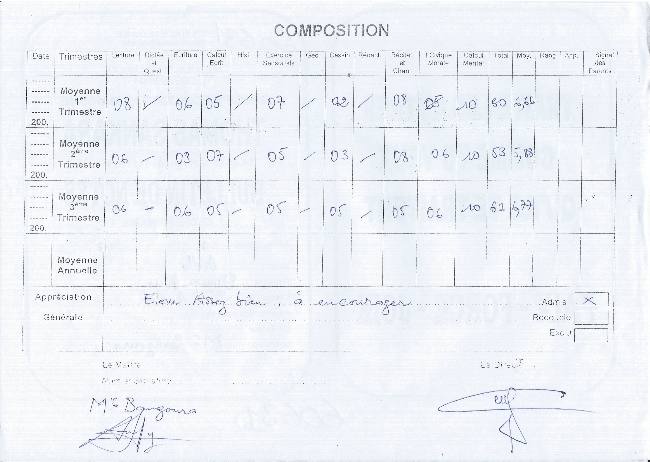 COMPOSITION
Date Trimestres Lecture Dictée et Quest Ecriture Calcul Ecrit Hist Exercice Sensoriels Géo Dessin Rédact. Récita et Chan I.Civique Morale Calcul Mental Total Moy. Rang App. Signat des Parents
Moyenne 1er Trimestre 08 / 06 05 / 07 / 02 / 08 05 10 60 6,66
200.
Moyenne 2ème Trimestre 06 / 03 07 / 05 / 03 / 08 06 10 53 5,88
200.
Moyenne 3ème Trimestre 06 - 06 05 / 05 / 05 / 05 06 10 61 6,77
200.
Moyenne Annuelle
Appréciation Générale Assez bien, à encourager Admis X
Redouble
Exclu
Le Maître Le Direct
Mr Bangoura